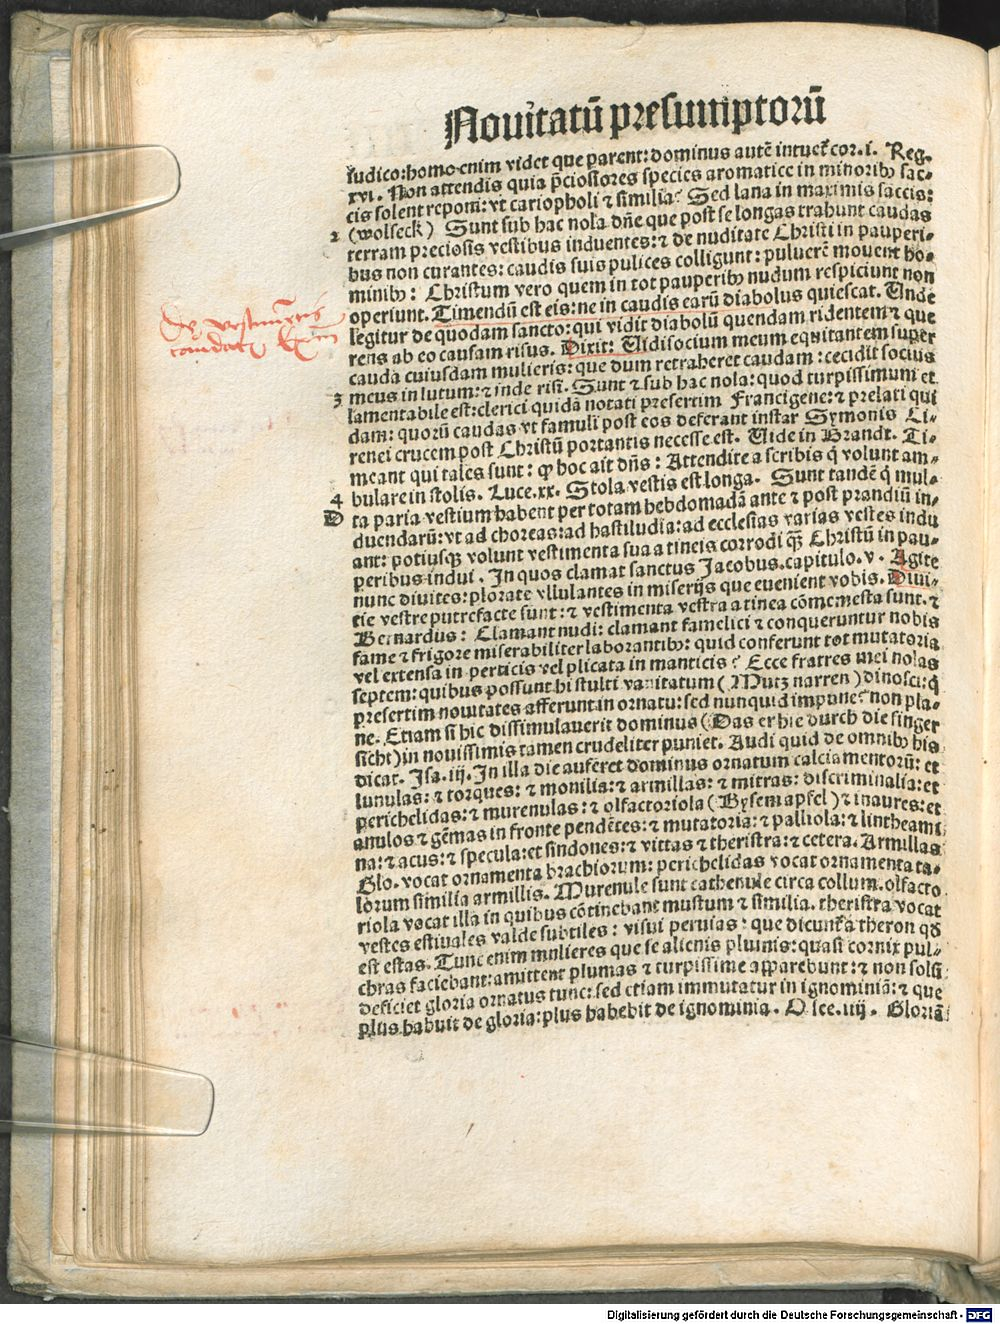 Nouitatū presumptorū
iudico: homo enim videt que parent: dominus autē intuet̃ cor. i. Reg.
xvi. Non attendis quia p̄ciosiores species aromatice in minoribꝫ sac⸗
cis solent reponi: vt cariopholi ⁊ similia? Sed lana in maximis saccis:
2 (wolseck) Sunt sub hac nola dn̄e que post se longas trahunt caudas
terram preciosis vestibus induentes: ⁊ de nuditate Christi in pauperi⸗
bus non curantes: caudis suis pulices colligunt: puluerē mouent ho⸗
minibꝫ: Christum vero quem in tot pauperibꝫ nudum respiciunt non
operiunt. Timendū est eis: ne in caudis earū diabolus quiescat. Unde
De vestimentis caudatis Exm
legitur de quodam sancto: qui vidit diabolū quendam ridentem ⁊ que
rens ab eo causam risus. Dixit: Uidi socium meum equitantem super
cauda cuiusdam mulieris: que dum retraheret caudam: cecidit socius
3 meus in lutum: ⁊ inde risi. Sunt ⁊ sub hac nola: quod turpissimum et
lamentabile est: clerici quidā notati presertim Francigene: ⁊ prelati qui
dam: quorū caudas vt famuli post eos deferant instar Symonis Ci⸗
renei crucem post Christū portantis necesse est. Uide in Brandt. Ti⸗
meant qui tales sunt: ꝙ hoc ait dn̄s: Attendite a scribis q̄ volunt am⸗
4 bulare in stolis. Luce. xx. Stola vestis est longa. Sunt tandē q̄ mul⸗
D ta paria vestium habent per totam hebdomadā ante ⁊ post prandiū in⸗
duendarū: vt ad choreas: ad hastiludia: ad ecclesias varias vestes indu
ant: potiusqꝫ volunt vestimenta sua a tineis corrodi qꝫ Christū in pau⸗
peribus indui. In quos clamat sanctus Jacobus. capitulo. v. Agite
nunc diuites: plorate vllulantes in miserijs que euenient vobis. Diui⸗
tie vestre putrefacte sunt: ⁊ vestimenta vestra a tinea cōmemesta sunt. ⁊
Bernardus: Clamant nudi: clamant famelici ⁊ conqueruntur nobis
fame ⁊ frigore miserabiliter laborantibꝫ: quid conferunt tot mutatoria
vel extensa in perticis vel plicata in manticis? Ecce fratres mei nolas
septem: quibus possunt hi stulti vanitatum (Mutz narren) dinosci: q̄
presertim nouitates afferunt in ornatu: sed nunquid impune? non pla⸗
ne. Etiam si hic dissimulauerit dominus (Das er hie durch die finger
sicht) in nouissimis tamen crudeliter puniet. Audi quid de omnibꝫ his
dicat. Isa. iij. In illa die auferet dominus ornatum calciamentorū: et
lunulas: ⁊ torques: ⁊ monilia: ⁊ armillas: ⁊ mitras: discriminalia: et
perichelidas: ⁊ murenulas: ⁊ olfactoriola (Bysem apfel) ⁊ inaures: et
anulos ⁊ gēmas in fronte pendētes: ⁊ mutatoria: ⁊ palliola: ⁊ lintheami
na: ⁊ acus: ⁊ specula: et sindones: ⁊ vittas ⁊ theristra: ⁊ cetera. Armillas
Glo. vocat ornamenta brachiorum: perichelidas vocat ornamenta ta⸗
lorum similia armillis. Murenule sunt cathenule circa collum. olfacto
riola vocat illa in quibus cōtinebant mustum ⁊ similia. theristra vocat
vestes estiuales valde subtiles: visui peruias: que dicunt̃ a theron qd̄
est estas. Tunc enim mulieres que se alienis plumis: quasi cornix pul⸗
chras faciebant: amittent plumas ⁊ turpissime apparebunt: ⁊ non solū
deficiet gloria ornatus tunc: sed etiam immutatur in ignominiā: ⁊ que
plus habuit de gloria: plus habebit de ignominia. Osee. iiij. Gloriā
Digitalisierung gefördert durch die Deutsche Forschungsgemeinschaft - DFG